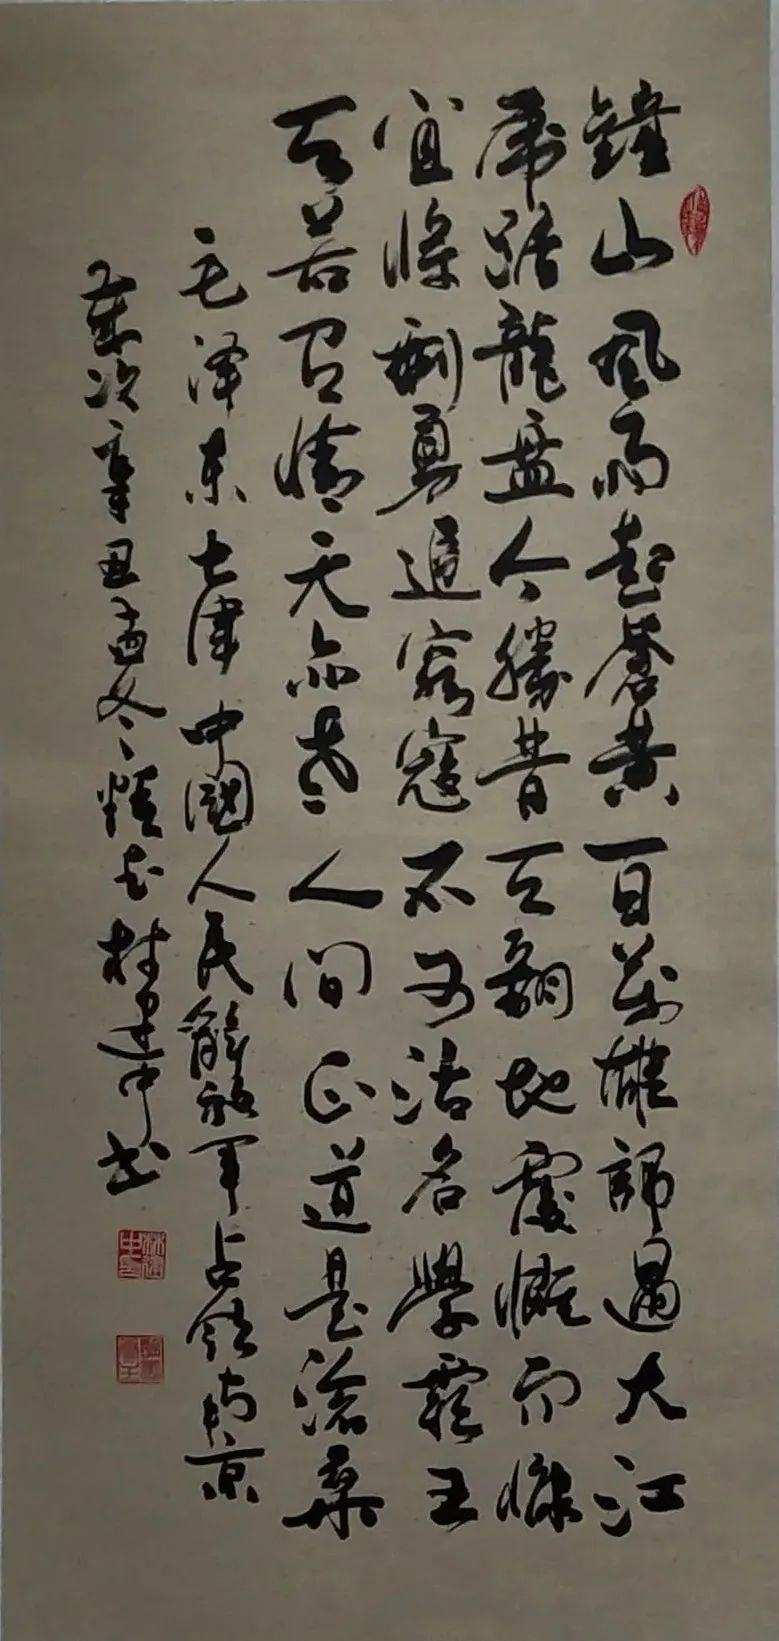 鐘山風雨起蒼黄百萬雄師過大江
虎踞龍盘今勝昔天翻地覆慨而慷
宜将剩勇追窮寇不可沽名學霸王
天若有情天亦老人间正道是滄桑
毛泽东七律中國人民解放军占领南京
歲次辛丑孟冬林建中书